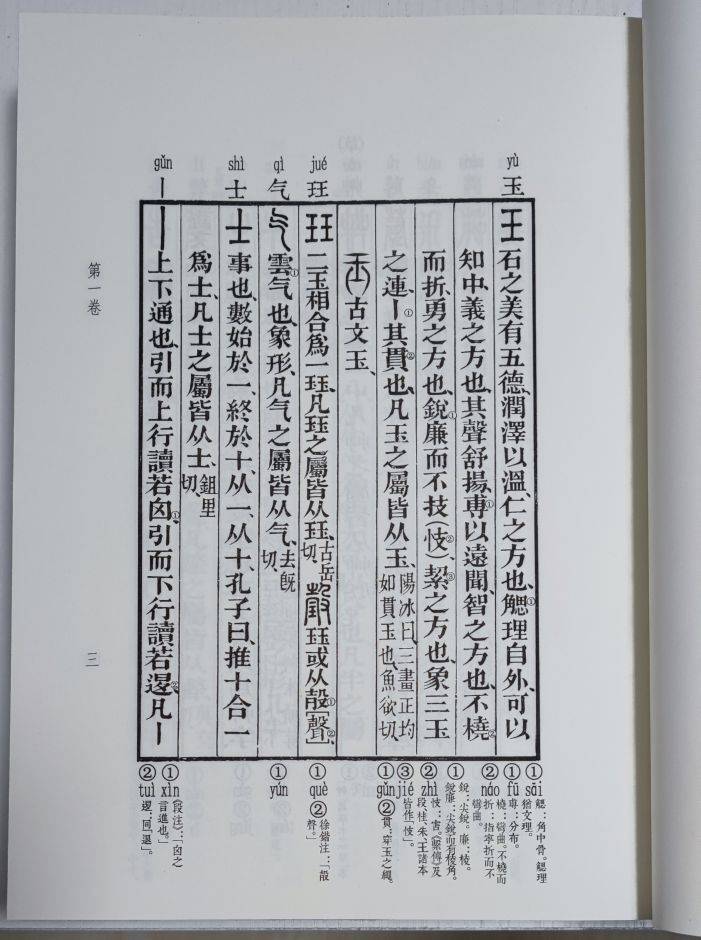 yù
玉
jué
玨
qì
气
shì
士
gǔn
丨
王石之美有五德、潤澤以溫、仁之方也、䚡①理自外、可以
知中、義之方也、其聲舒揚、尃①以遠聞、智之方也、不橈②
而折、勇之方也、銳①廉而不技(忮②)、絜③之方也、象三玉
之連、丨①其貫②也、凡玉之屬皆从玉、陽冰曰、三畫正均
如貫玉也、魚欲切、
古文玉、
玨二玉相合爲一玨、凡玨之屬皆从玨、古岳
切、瑴玨或从㱿①[聲②]
气雲①气也、象形、凡气之屬皆从气、去旣
切、
士事也、數始於一、終於十、从一、从十、孔子曰、推十合一
爲士、凡士之屬皆从士、鉏里
切、
丨上下通也、引而上行讀若囟①、引而下行讀若𨓤②、凡丨
①sāi 䚡：角中骨。䚡理
猶文理。
①fū 尃：分布。
②náo 橈：彎曲。不橈而
折：指寧折而不
彎曲。
①銳：尖銳。廉：棱。
銳廉：尖銳而有棱角。
②zhì 忮：害。《繫傳》及
段、桂、朱、王諸本
皆作「忮」。
③jié
①gǔn ②貫：穿玉之繩。
①què ②徐鍇注：「㱿
聲。」
①yún
①xìn 《段注》：「囟之
言進也。」
②tuì 𨓤：同「退」。
第一卷
三